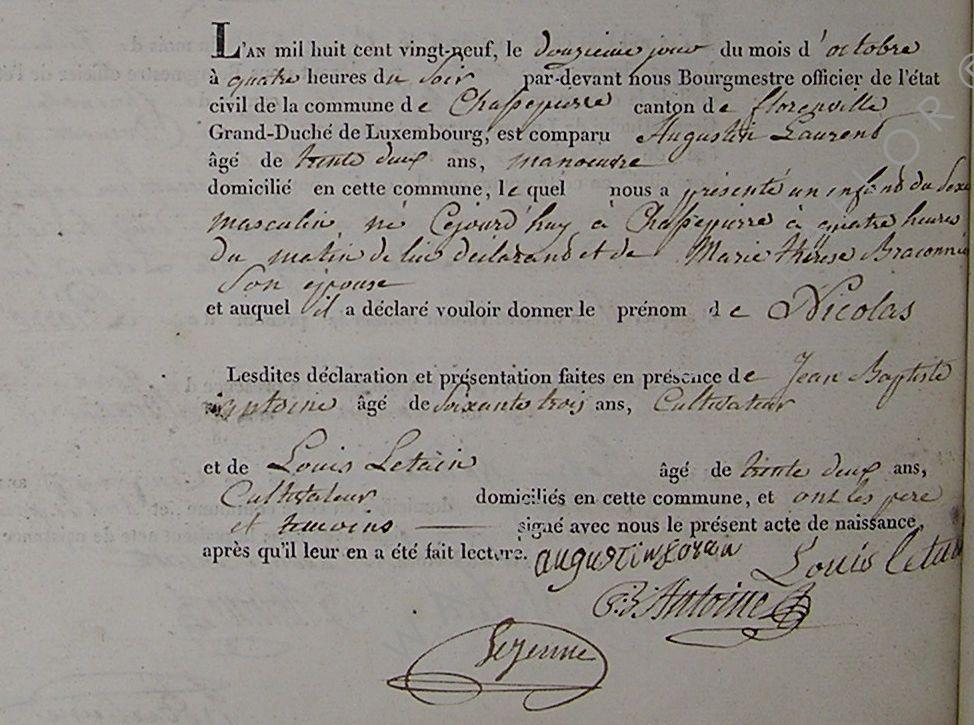 L'AN mil huit cent vingt-neuf, le douzieme jour du mois d'octobre
à quatre heures du soir par-devant nous Bourgmestre officier de l'état
civil de la commune de Chassepierre canton de florenville
Grand-Duché de Luxembourg, est comparu Augustin Laurent
âgé de trente deux ans, manoeuvre
domicilié en cette commune, lequel nous a présenté un enfant du Sexe
masculin, né Cejourd'huy à Chassepierre à quatre heures
du matin de lui déclarant et de Marie thérèse Braconnie
Son epouse
et auquel il a déclaré vouloir donner le prénom de Nicolas
Lesdites déclaration et présentation faites en présence de Jean Baptiste
antoine âgé de Soixante trois ans, Cultivateur
et de Louis Letain âgé de trente deux ans,
Cultivateur domiciliés en cette commune, et ont les pere
et temoins signé avec nous le présent acte de naissance,
après qu'il leur en a été fait lecture. augustin Loran Louis letain
J:B: Antoine
Lezenne